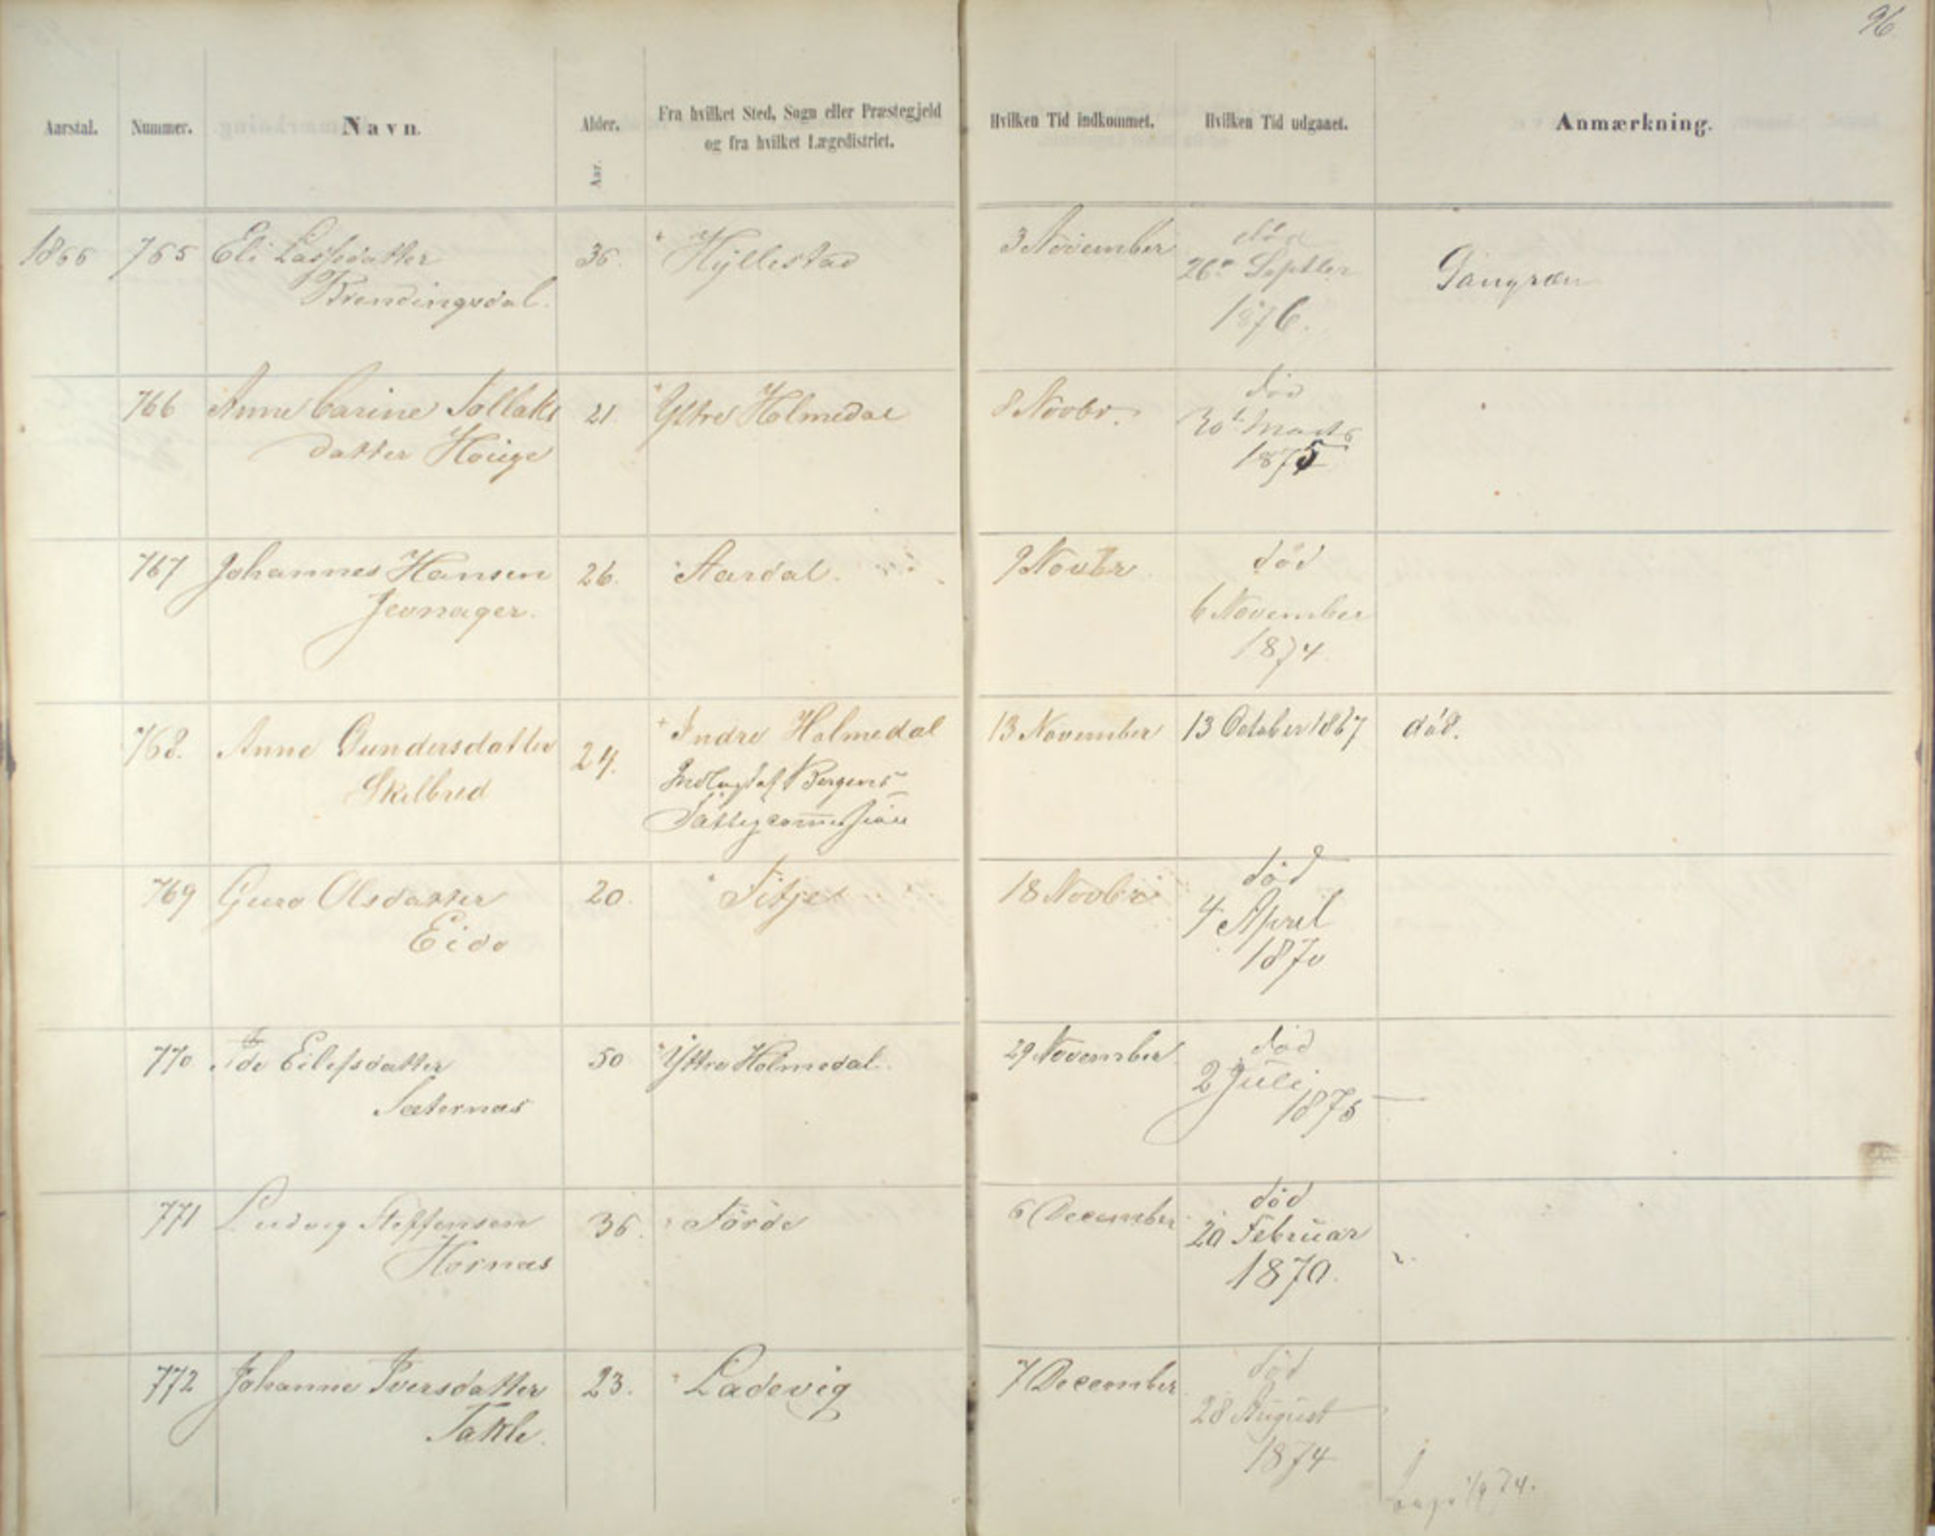 96
Aarstal. Nummer. Navn. Alder. Fra hvilket Sted, Sogn eller Præstegjeld Hvilken Tid indkommet. Hvilken Tid udgaaet. Anmærkning.
Aar. og fra hvilket Lægedistrict.
1866 765 Eli Lassesdatter 36. Hyllestad 3 November død
Brendingsdal. 26de Septber Gangræn
1876.
766 Anne Carine Tollaks 21. Yttre Holmedal 8 Novbr. død
datter Houge 30te Marts
1875
767 Johannes Hansen 26. Aardal. 9 Novbr død
6 November
1874.
768. Anne Gundersdatter 24. Indre Holmedal 13 November 13 October 1867 død.
Skilbred Indlagt af Bergens
Fattigcommission
769 Guro Olsdatter 20. Fitje 18 Novbr død
Eide 4 April
1870
770 Eilefsdatter 50 Yttre Holmedal. 29 November død
Sæternæs 2 Juli
1875
771 Ludvig Steffensen 36. Förde 6 December død
Hornæs 20 Februar
1870.
772 Johanne Iversdatter 23. Ladevig 7 December død
Takle. 28 August
1874
1/9 74.